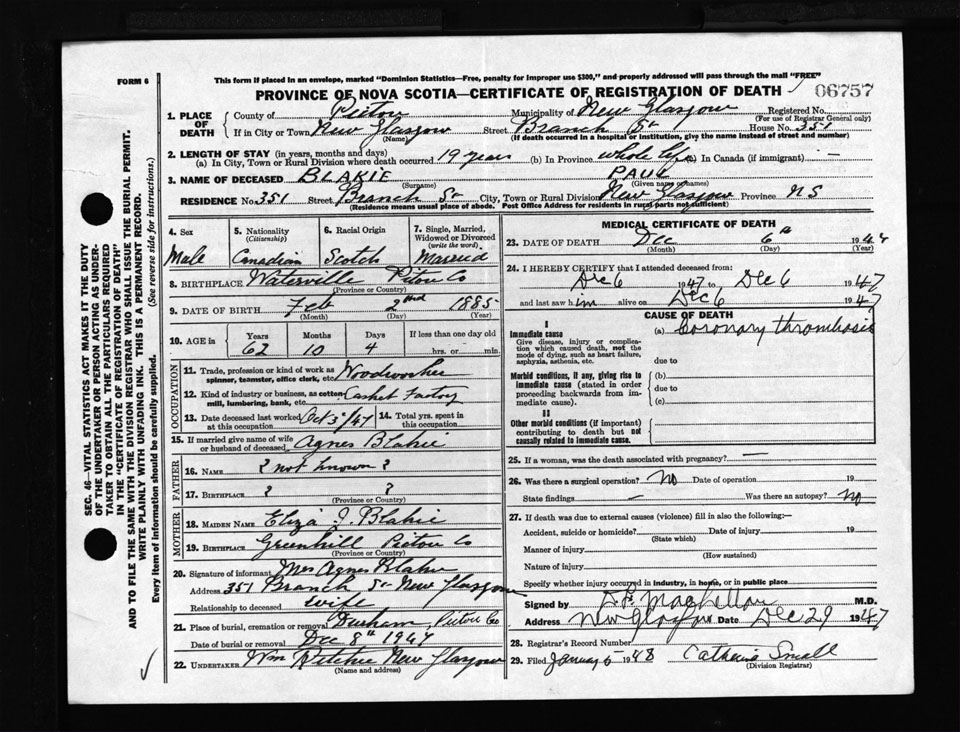 FORM 6
This form if placed in an envelope, marked "Dominion Statistics—Free, penalty for improper use $300," and properly addressed will pass through the mail "FREE"
PROVINCE OF NOVA SCOTIA—CERTIFICATE OF REGISTRATION OF DEATH 06757
1. PLACE OF DEATH { County of Pictou Municipality of New Glasgow Registered No.
(For use of Registrar General only)
If in City or Town New Glasgow Street Branch St House No. 351
(Name) (If death occurred in a hospital or institution, give the name instead of street and number)
2. LENGTH OF STAY (in years, months and days)
(a) In City, Town or Rural Division where death occurred 19 years (b) In Province whole life (c) In Canada (if immigrant) —
3. NAME OF DECEASED BLAKIE PAUL
(Surname) (Given name or names)
RESIDENCE No. 351 Street Branch St City, Town or Rural Division New Glasgow Province NS
(Residence means usual place of abode. Post Office Address for residents in rural parts not sufficient)
4. Sex 5. Nationality (Citizenship) 6. Racial Origin 7. Single, Married, Widowed or Divorced (write the word)
Male Canadian Scotch Married
8. BIRTHPLACE Waterville Pictou Co
(Province or Country)
9. DATE OF BIRTH Feb 2nd 1885
(Month) (Day) (Year)
10. AGE in Years Months Days If less than one day old
62 10 4 hrs. or min.
OCCUPATION
11. Trade, profession or kind of work as spinner, teamster, office clerk, etc. Woodworker
12. Kind of industry or business, as cotton mill, lumbering, bank, etc. Casket Factory
13. Date deceased last worked at this occupation Oct 3/47 14. Total yrs. spent in this occupation
15. If married give name of wife or husband of deceased Agnes Blakie
FATHER
16. Name ? not known ?
17. Birthplace ? ?
(Province or Country)
MOTHER
18. MAIDEN NAME Eliza J. Blakie
19. BIRTHPLACE Greenhill Pictou Co
(Province or Country)
20. Signature of informant Mrs Agnes Blakie
Address 351 Branch St New Glasgow
Relationship to deceased wife
21. Place of burial, cremation or removal Durham, Pictou Co
Date of burial or removal Dec 8th 1947
22. UNDERTAKER Wm Ritchie New Glasgow
(Name and address)
MEDICAL CERTIFICATE OF DEATH
23. DATE OF DEATH Dec 6th 1947
(Month) (Day) (Year)
24. I HEREBY CERTIFY that I attended deceased from:
Dec 6 1947 to Dec 6 1947
and last saw him alive on Dec 6 1947
CAUSE OF DEATH
I
Immediate cause (a) Coronary thrombosis
Give disease, injury or complication which caused death, not the mode of dying, such as heart failure, asphyxia, asthenia, etc. due to
Morbid conditions, if any, giving rise to immediate cause (stated in order proceeding backwards from immediate cause). (b) due to (c)
II
Other morbid conditions (if important) contributing to death but not causally related to immediate cause.
25. If a woman, was the death associated with pregnancy? —
26. Was there a surgical operation? No Date of operation 19
State findings — Was there an autopsy? No
27. If death was due to external causes (violence) fill in also the following:—
Accident, suicide or homicide? Date of injury 19
(State which)
Manner of injury
(How sustained)
Nature of injury
Specify whether injury occurred in industry, in home, or in public place
Signed by M.D.
Address New Glasgow Date Dec 29 1947
28. Registrar's Record Number
29. Filed January 5 1948 Catherine Small
(Division Registrar)
SEC. 46—VITAL STATISTICS ACT MAKES IT THE DUTY
OF THE UNDERTAKER OR PERSON ACTING AS UNDER-
TAKER TO OBTAIN ALL THE PARTICULARS REQUIRED
IN THE "CERTIFICATE OF REGISTRATION OF DEATH"
AND TO FILE THE SAME WITH THE DIVISION REGISTRAR WHO SHALL ISSUE THE BURIAL PERMIT.
WRITE PLAINLY WITH UNFADING INK. THIS IS A PERMANENT RECORD.
Every item of information should be carefully supplied. (See reverse side for instructions.)